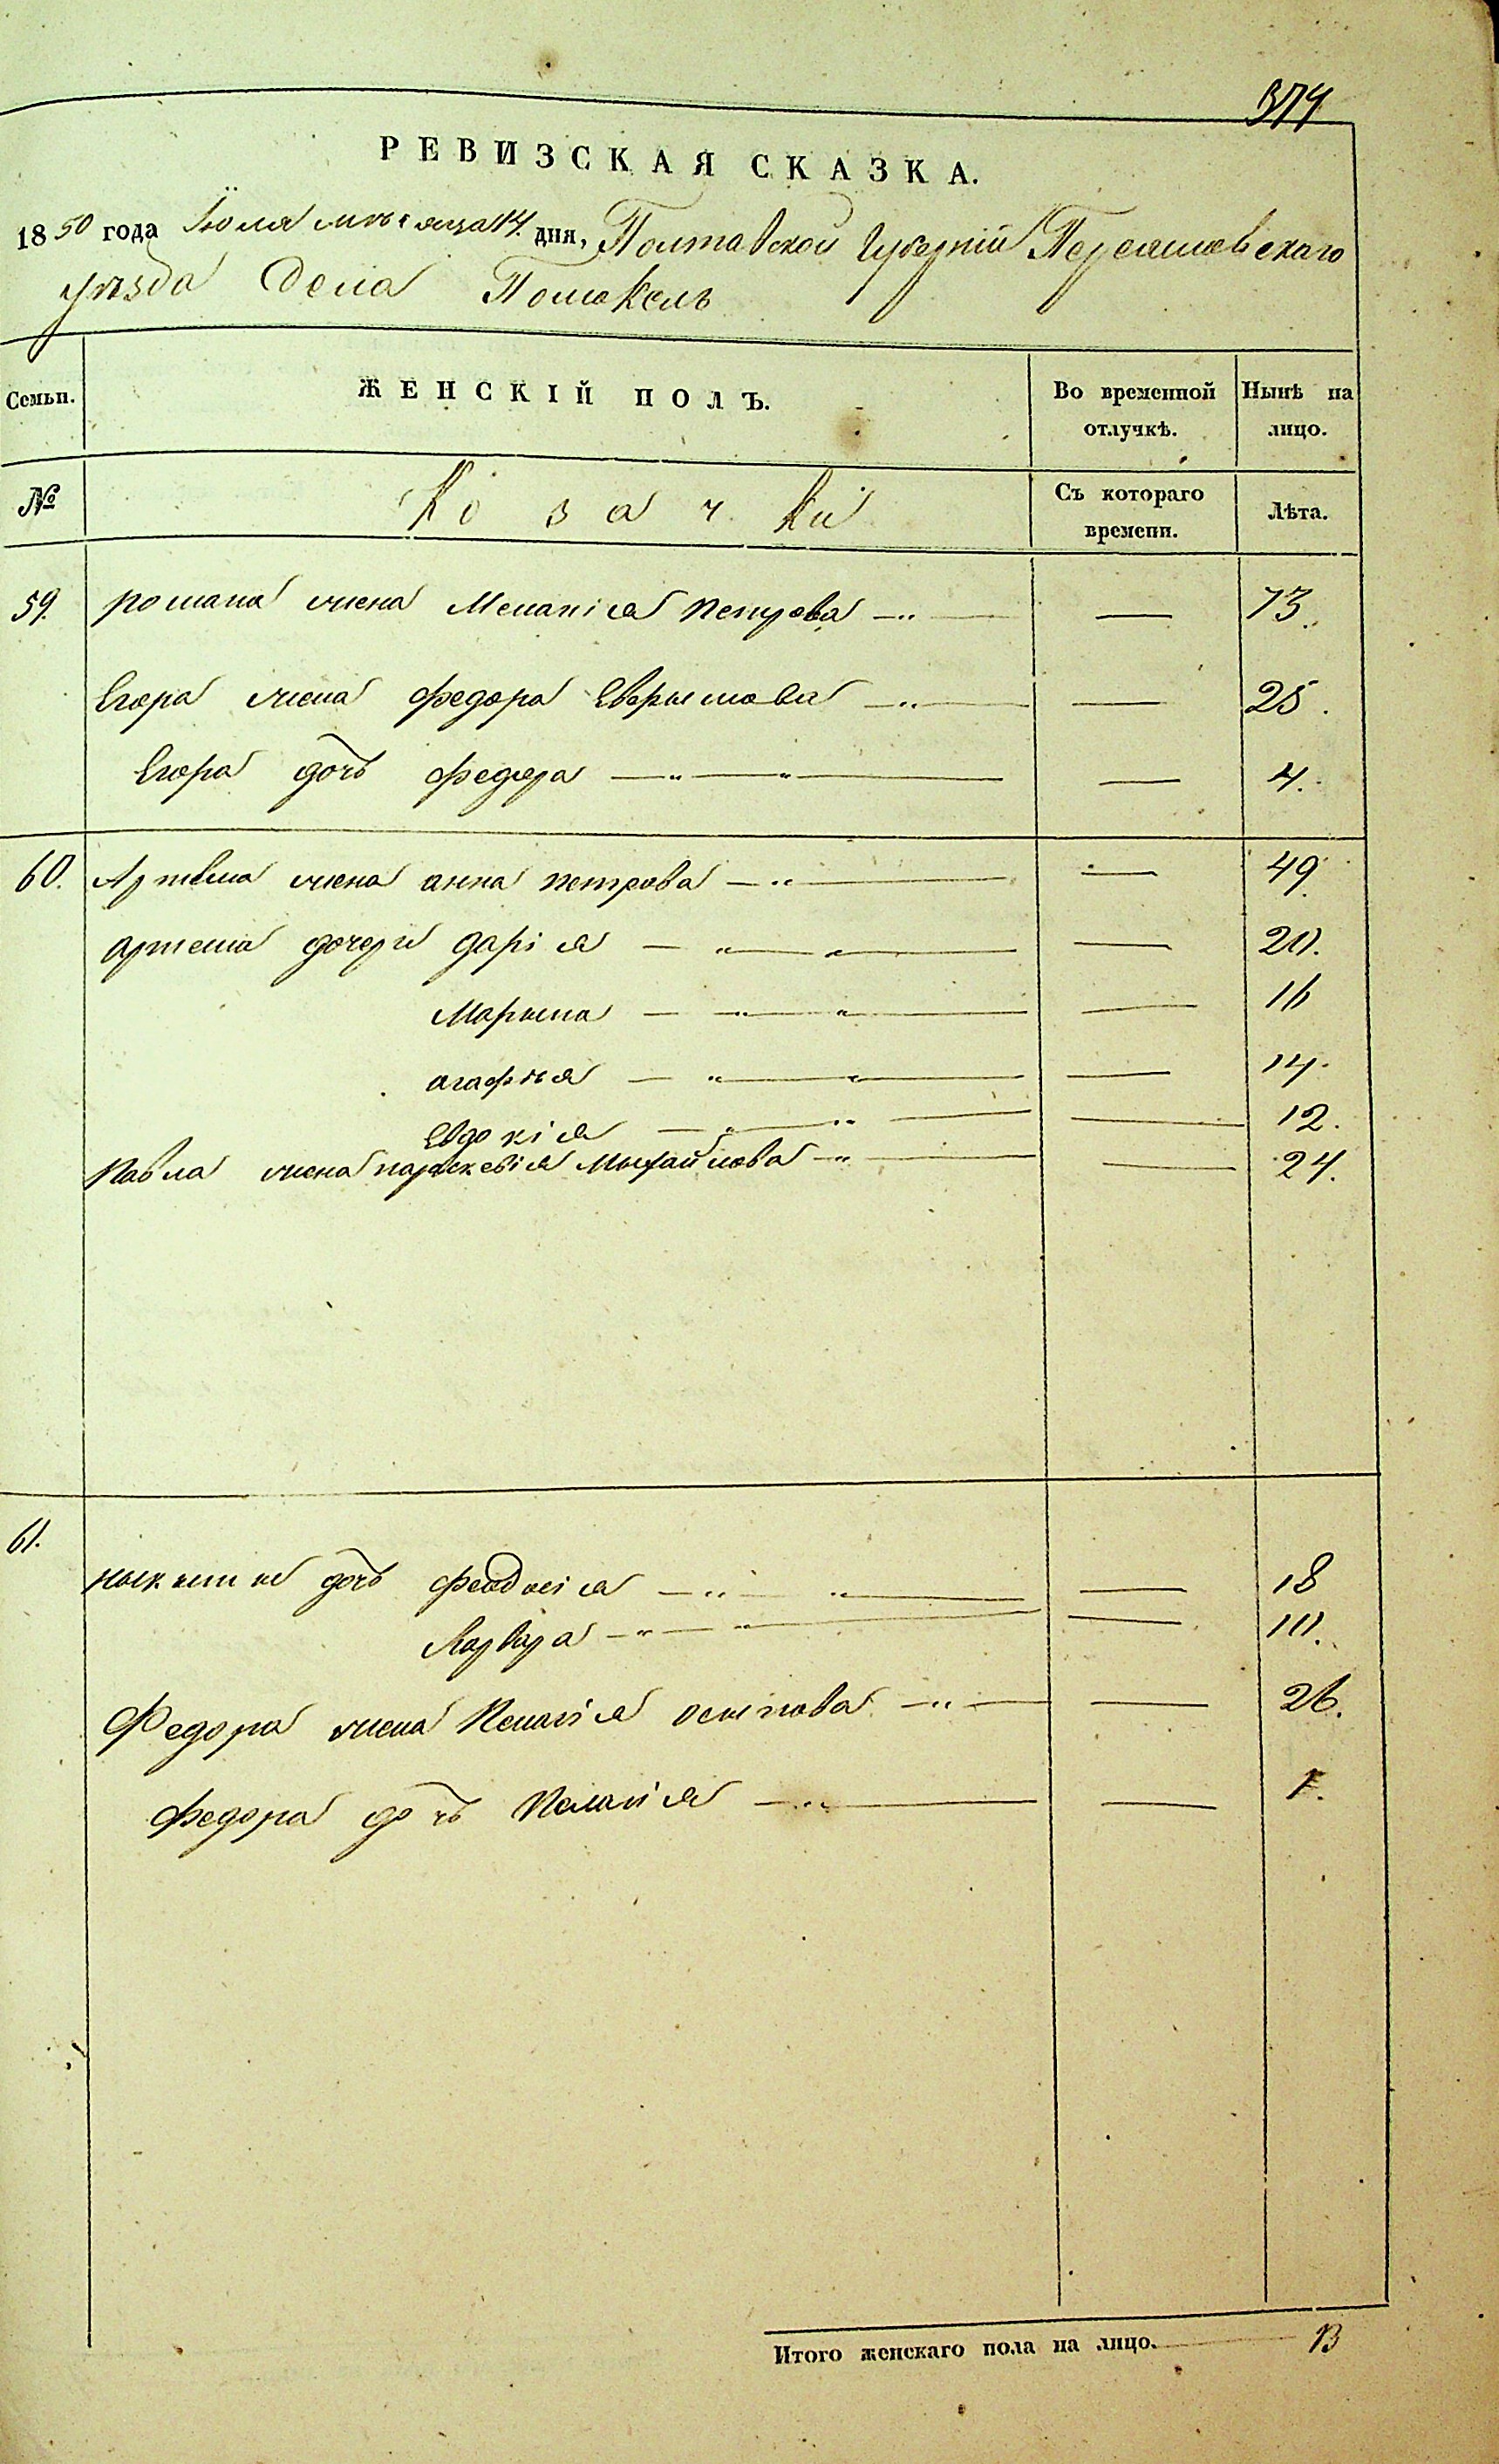 374
РЕВИЗСКАЯ СКАЗКА.
1850 года Іюля мѣсяца 14. дня, Полтавской Губерніи Переяславскаго
уѣзда Села Помокель
Семьи. ЖЕНСКІЙ ПОЛЪ. Во временной отлучкѣ. Нынѣ на лицо.
№ Козачки Съ котораго времени. Лѣта.
59. романа жена Меланія Петрова — 73.
Егора жена федора — 25.
Егора дочь федора — 4.
60. Артема жена анна петрова — 49.
артема дочери дарія — 20.
Марына — 16
агафія — 14.
Евдокія — 12.
Павла жена параскевія Мыхайлова — 24.
61. ныкыты дочь Феодосія — 18
Варвара — 10.
Федора жена Пелагія осыпова — 26.
Федора дочь Пелагія — 1.
Итого женскаго пола на лицо. 13